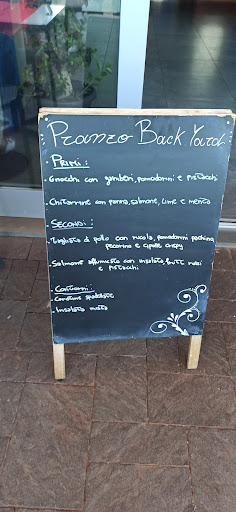 Pranzo Back Yard
Primi:
- Gnocchi con gamberi, pomodorini e pistacchi
- Chitarrine con panna, salmone, lime e menta
Secondi:
- Tagliata di pollo con rucola, pomodorini pachino,
pecorino e cipolle crispy
- Salmone affumicato con insalata, frutti rossi
e pistacchi
Contorni:
- Verdure
- Insalata mista